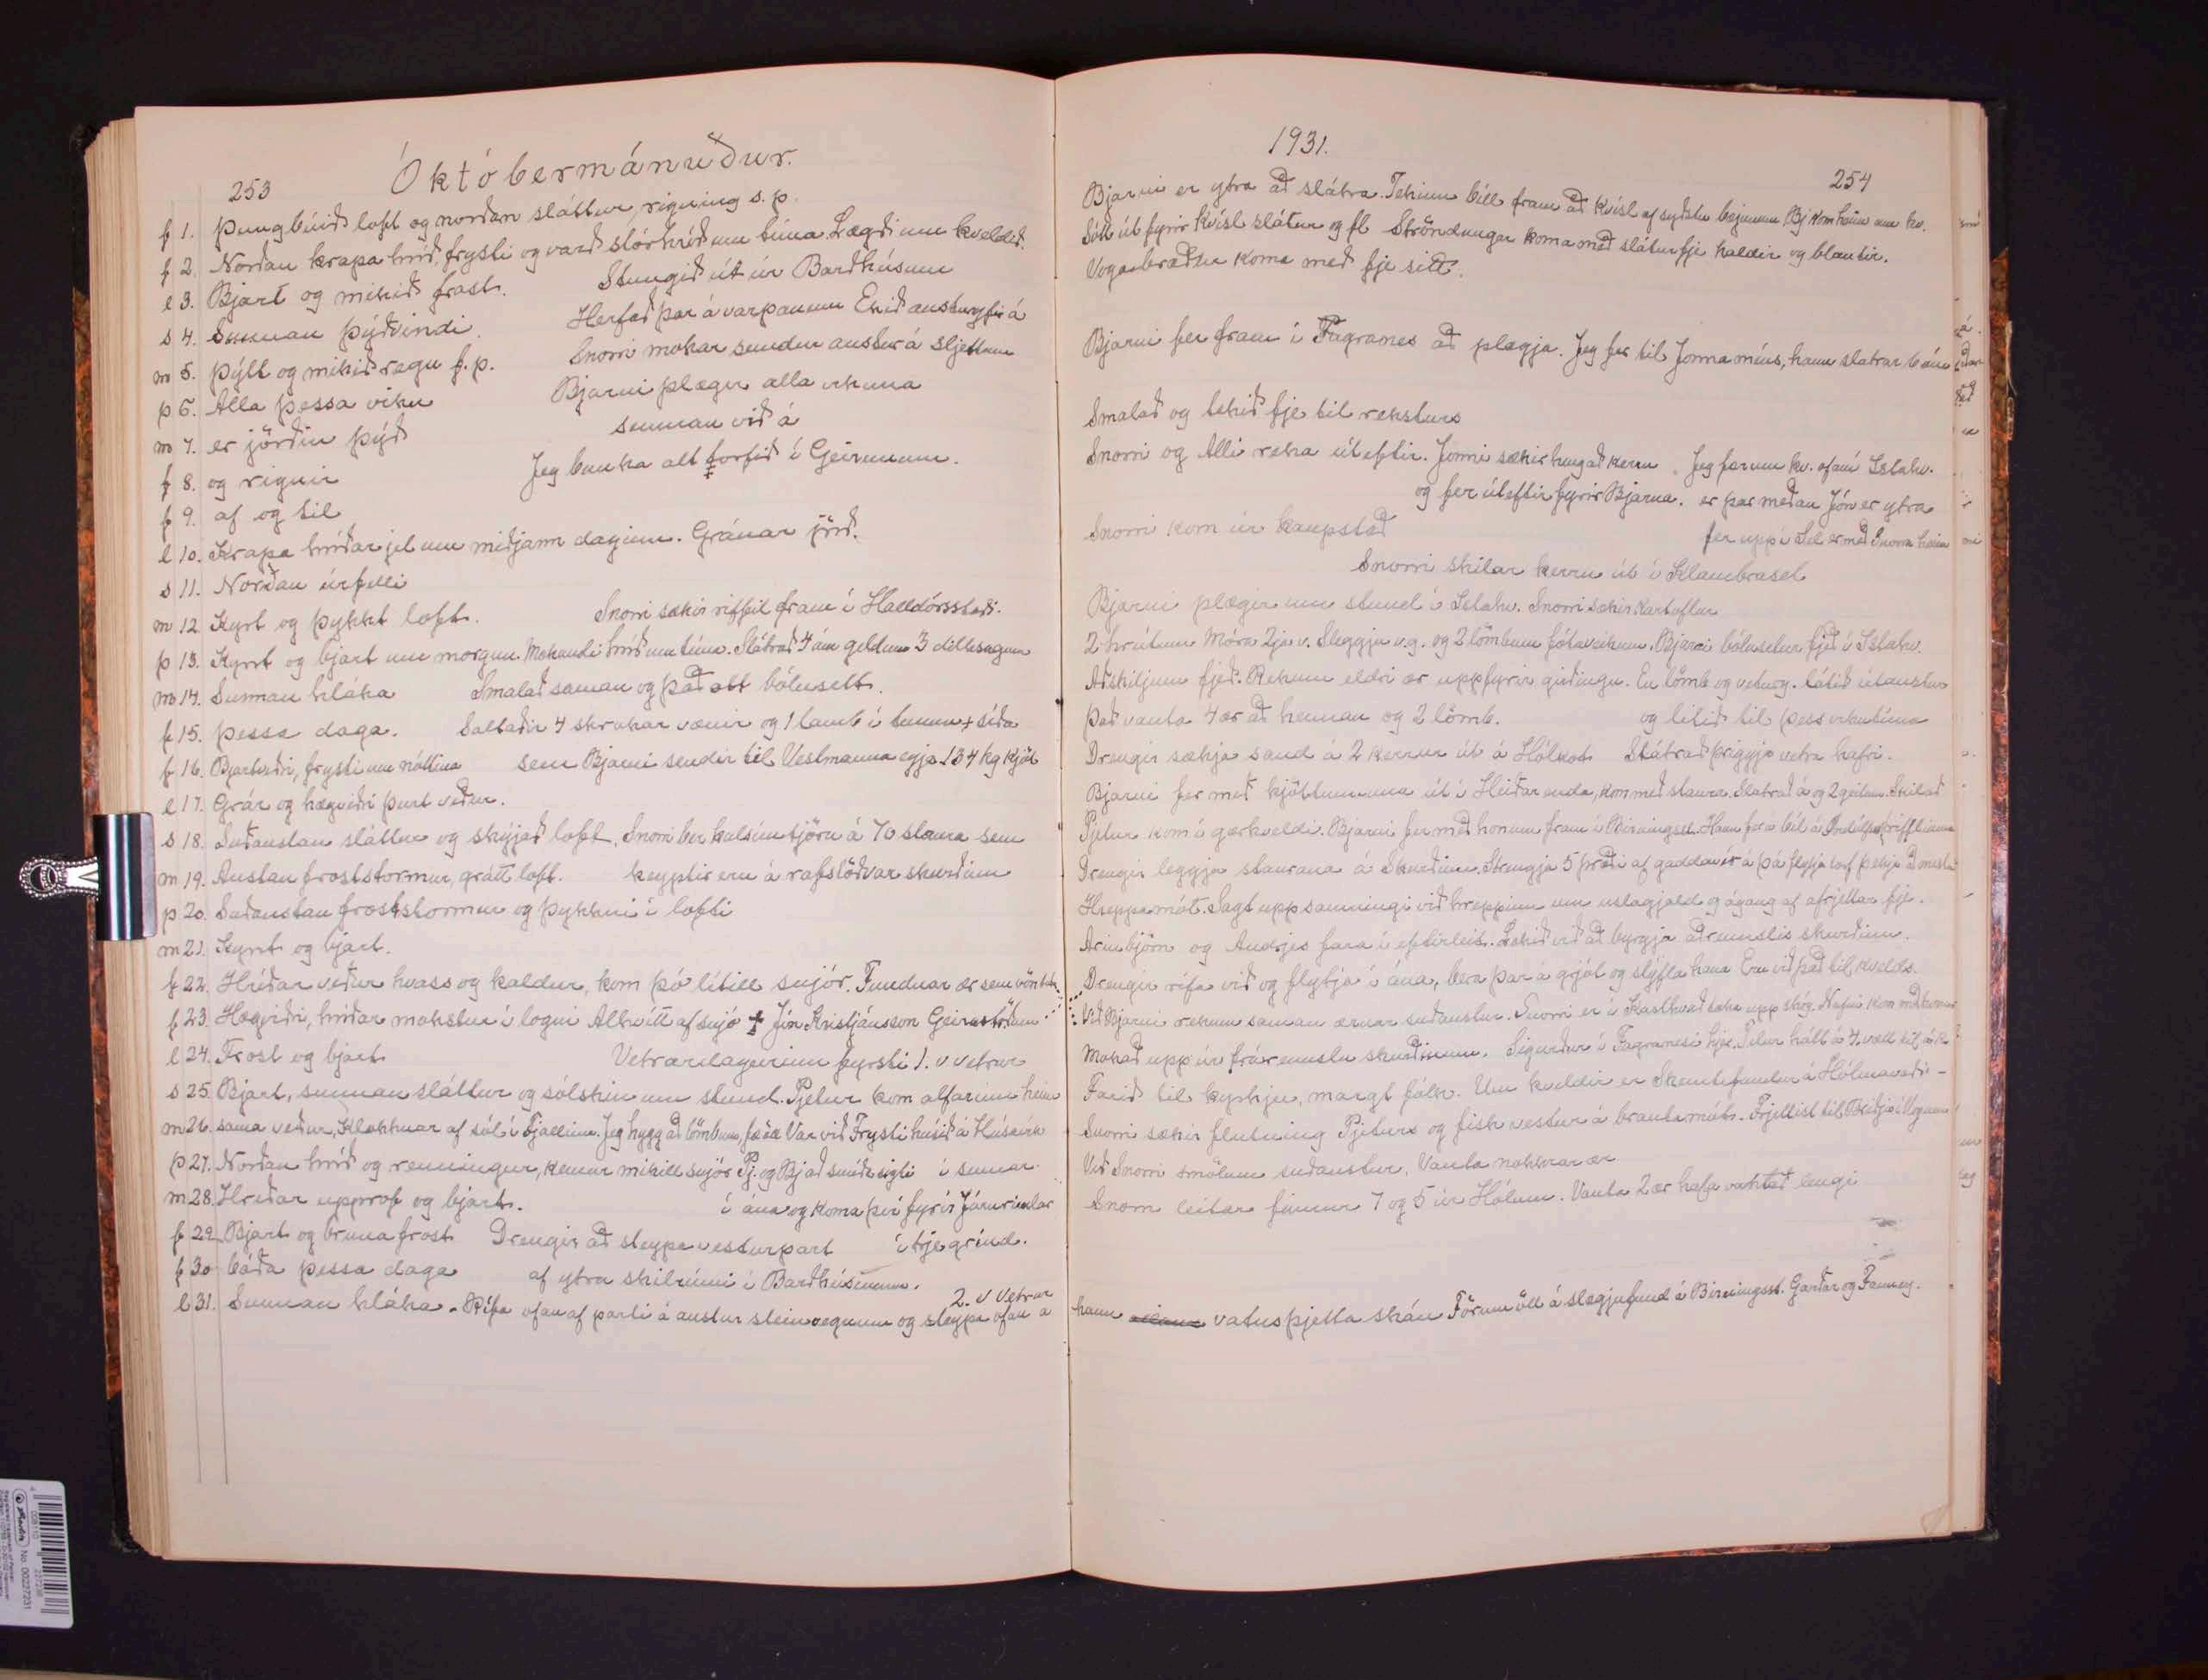 253
Októbermánuður.
f 1. Þungbúið loft og norðan sláttur, rigning s.p.
f 2. Norðan krapa hríð, frysti og varð stórhríð um tíma. Lægði um kveldið.
l 3. Bjart og mikið frost. Stungið út úr Barðhúsum
s 4. Sunnan þýðvindi. Herfað þar á varpanum Ekið austuryfir á
m 5. Þýtt og mikið regn f.p. Snorri mokar sundur austur á sljettum
þ 6. Alla þessa viku Bjarni plægir alla vikuna
m 7. er jörðin þýð sunnan við á
f 8. og rignir Jeg banka alt torfið í Geirunum.
f 9. af og til
l 10. Krapa hríðarjel um miðjann daginn. Gránar jörð.
s 11. Norðan úrfelli
m 12. Kyrt og þykkt loft. Snorri sækir riffil fram í Halldórsstaði.
þ 13. Kyrrt og bjart um morgun. Mokandi hríð um tíma. Slátrað 4 ám geldum 3 dilksugum
m 14. Sunnan hláka Smalað saman og það alt bólusett.
f 15. þessa daga. Saltaðir 4 skrokar vænir og 1 lamb í tunnu + síða
f 16. Bjartviðri, frysti um nóttina sem Bjarni sendir til Vestmanna eyja 134 kg kjöt
l 17. Grár og hægviðri þurt veður.
s 18. Suðaustan sláttur og skýjað loft, Snorri ber hulsintjöru á 70 staura sem
m 19. Austan froststormur, grátt loft. keyptir eru á rafstöðvar skurðinn
þ 20. Suðaustan froststormur og þykkni í lofti
m 21. Kyrt og bjart.
f 22. Hríðar veður hvass og kaldur, kom þó lítill snjór. Fundnar ær sem vöntuðu
f 23. Hægviðri, hríðar mokstur í logni Alhvítt af snjó + Jón Kristjánsson Geirastöðum
l 24. Frost og bjart Vetrardagurinn fyrsti 1. v vetrar
s 25. Bjart, sunnan sláttur og sólskin um stund. Pjetur kom alfarinn heim
m 26. sama veður, Klökknar af sól í Fjallinu. Jeg hygg að lömbum, Var við Frystihúsið á Húsavík
þ 27. Norðan hríð og renningur, kemur mikill snjór Pj. og Bj að smíða í sumar
m 28. Hríðar upprof og bjart. í ána og koma því fyrir Járnrimlar
f 29. Bjart og bruna frost Drengir að steypa vesturpart í trjegrind.
f 30 báða þessa daga af ytra skilrúmi í Barðhúsunum.
2. v Vetrar
l 31. Sunnan hláka. Rífa ofan af parti á austur steinvegnum og steypa ofan á
1931.
254
Bjarni er ytra að slátra. Tekinn bíll fram að Kvísl af syðstu bæjunum Bj kom heim um kv.
Sótt út fyrir Kvísl slátur og fl Ströndungar koma með sláturfje kaldir og blautir.
Vogabræður koma með fje sitt.
Bjarni fer fram í Fagranes að plægja. Jeg fer til Jonna míns, hann slatrar 6 ám
Smalað og tekið fje til reksturs
Snorri og Alli reka úteftir. Jonni sækir hingað kerru. Jeg fer um kv. ofaní Ístahv.
og fer úteftir fyrir Bjarna. er þar meðan Jón er ytra
Snorri kom úr kaupstað fer uppí Sel er með Snorra heim
Snorri skilar kerru út í Klambrasel
Bjarni plægir um stund í Ístahv. Snorri sækir kartoflur
2 hrútum Móra 2ja v. Sleggju v.g. og 2 lömbum fótaveikum. Bjarni bólusetur fjeð í Ístahv.
Aðskiljum fjeð. Rekum eldri ær uppfyrir girðingu. En lömb og veturg. látið útaustur
það vanta 4 ær að heiman og 2 lömb. og litið til þess vikutíma
Drengir sækja sand á 2 kerrum út á Hólkot Slátrað þriggja vetra hafri.
Bjarni fer með kjöttununa út í Heiðarenda, kom með staura. Slatrað á og 2 geitum. Skilað
Pjetur kom í gærkveldi. Bjarni fer með honum fram í Birningsst. Hann fer á bíl
Drengir leggja staurana á Skurðinn. Strengja 5 þræði af gaddavír á þá flytja torf þekja
Hreppamót. Sagt upp samningi við hreppinn um uslagjald ágang af afrjettar fje.
Arinbjörn og Andrjes fara í eftirleit. Lokið við að byrgja aðrennslis skurðinn.
Drengir rífa við og flytja í ána, bera þar á grjót og stýfla hana Eru við það til kvelds.
Við Bjarni rekum saman ærnar suðaustur. Snorri er í Kasthvað taka upp skóg.
Mokað upp úr frárennslu skurðinum. Sigurður í Fagranesi hjer.
Farið til kyrkju, margt fólk. Um kveldið er Skemtifundur á Hólmavaði -
Snorri sækir flutning Pjeturs og fisk vestur á brautamót.
Við Snorri smölum suðaustur. Vanta nokkrar ær
Snorri leitar finnur 7 og 5 úr Hólum. Vanta 2 ær hafa vaktað lengi
hann vatnsþjetta skán Förum öll á slægjufund á Birningsst. Garðar og Fanney.